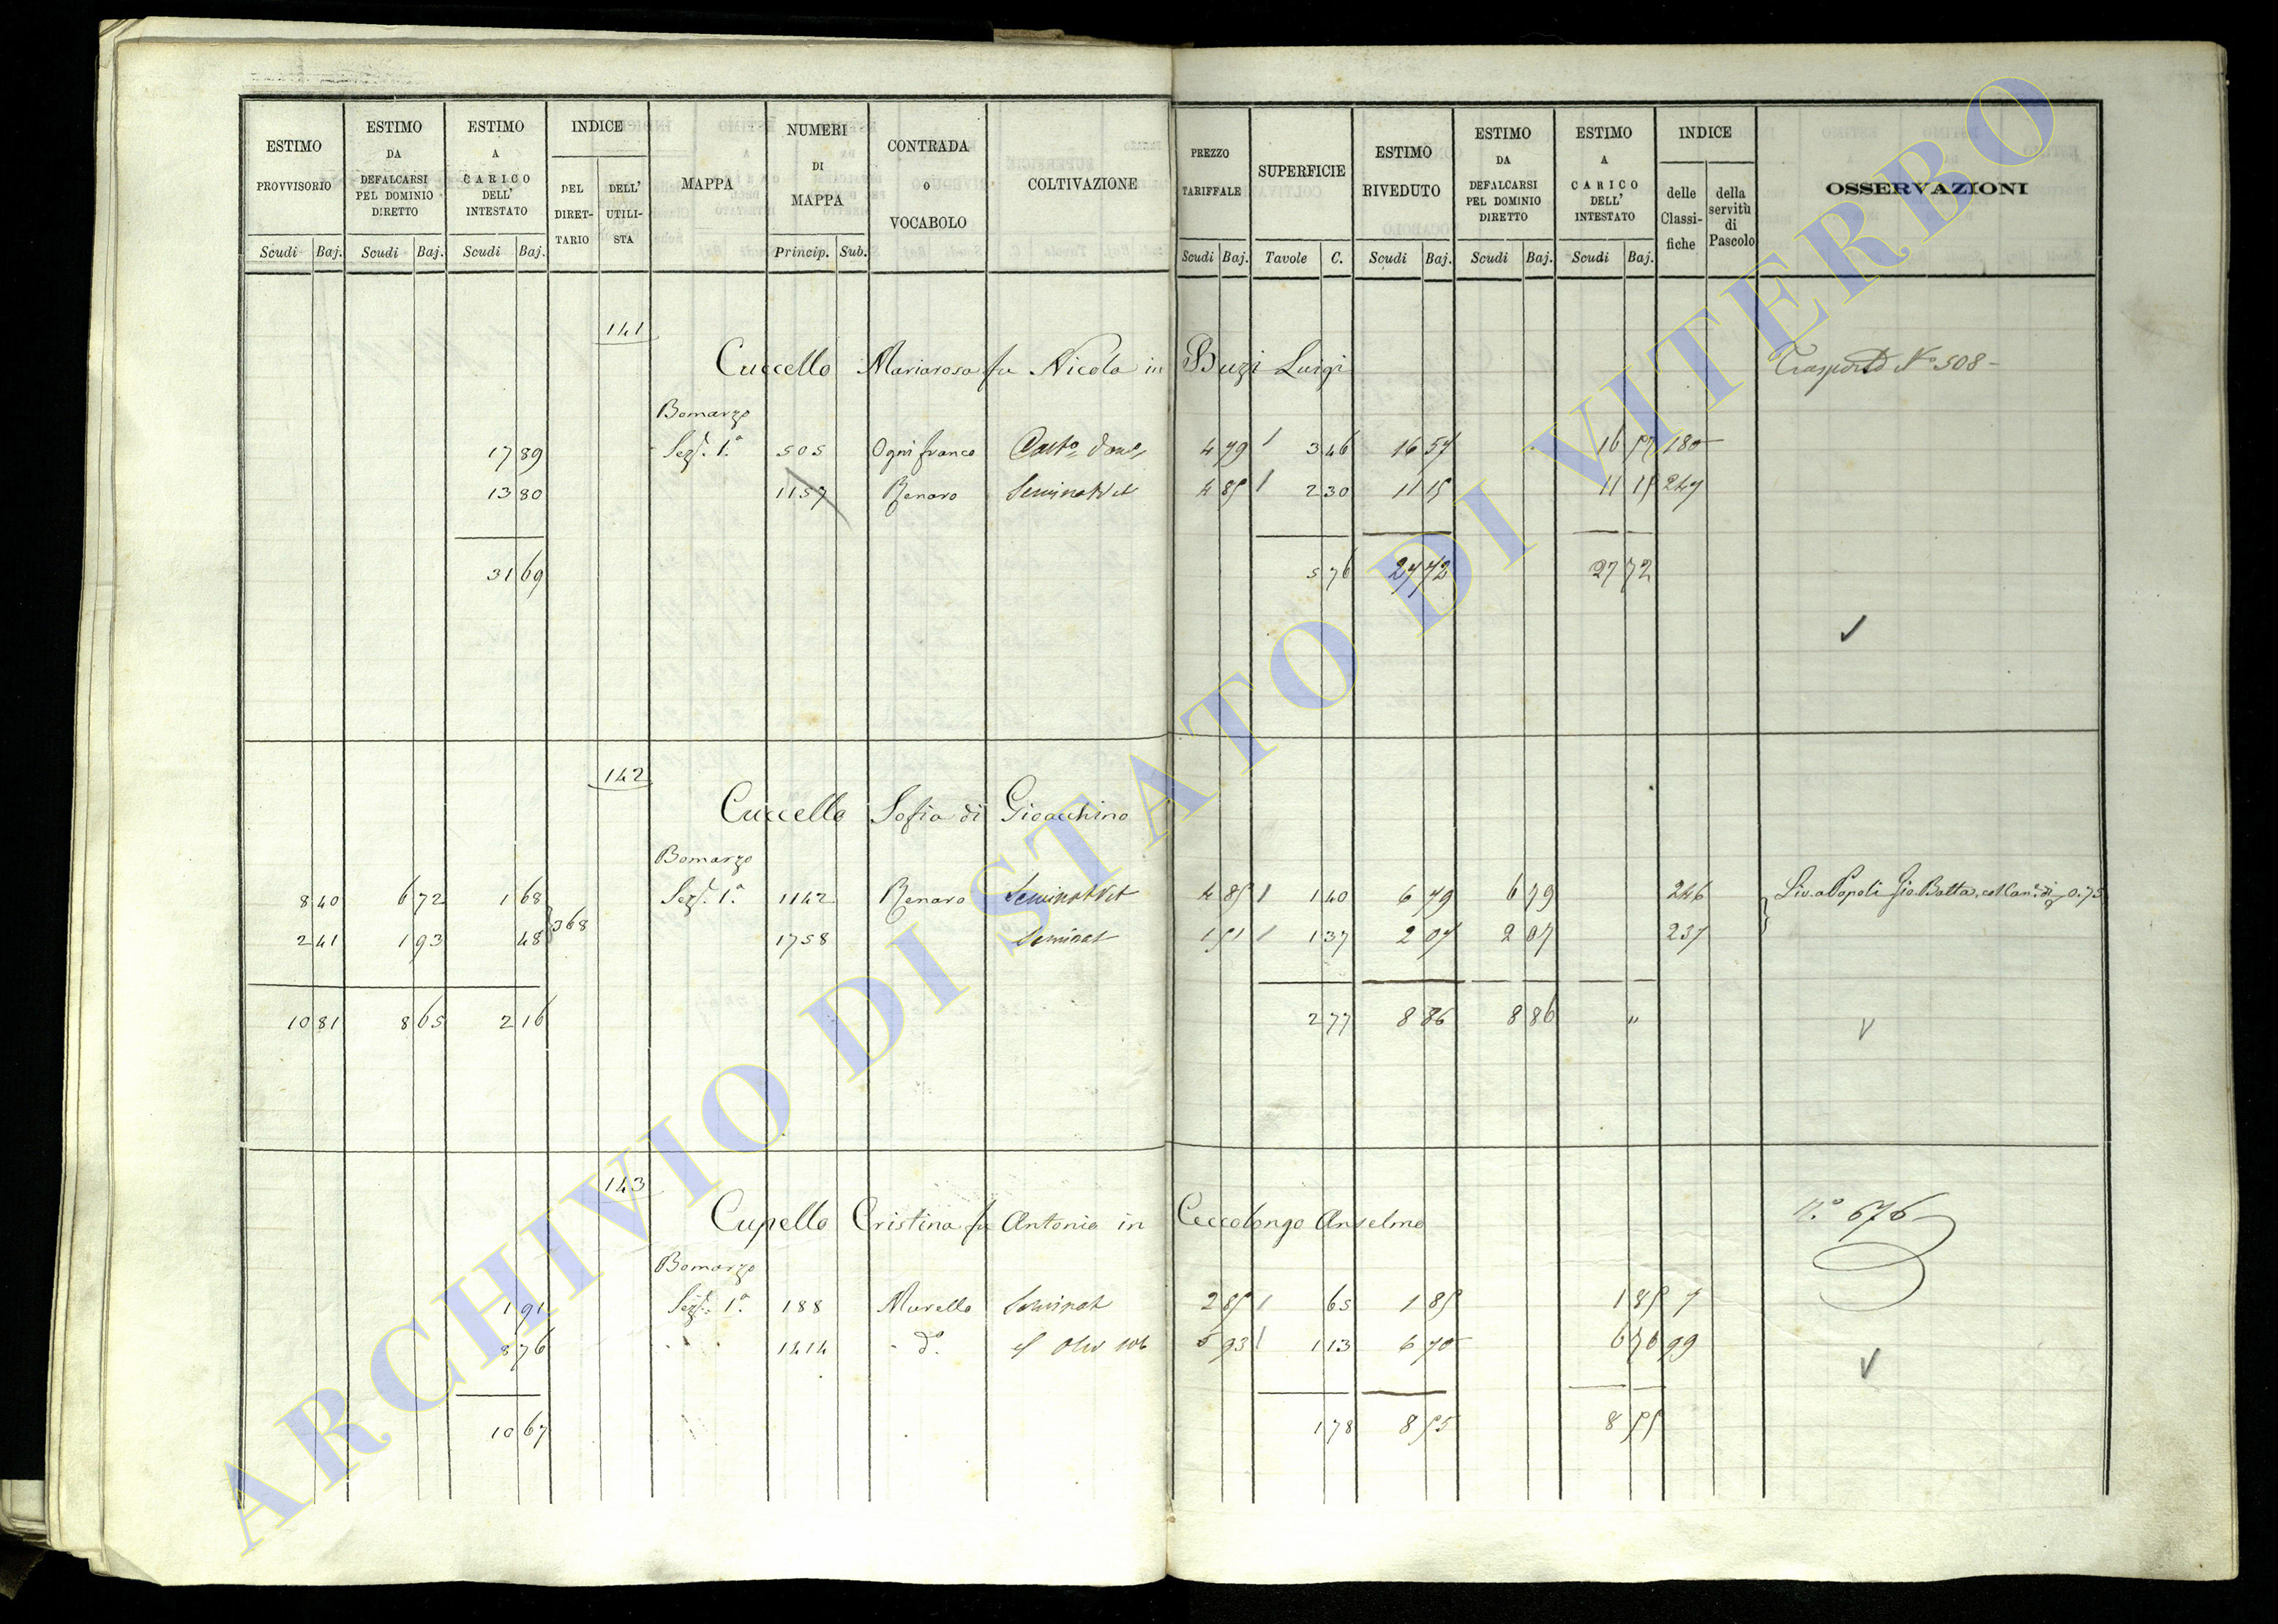 ESTIMO PROVVISORIO | ESTIMO DA DEFALCARSI PEL DOMINIO DIRETTO | ESTIMO A CARICO DELL' INTESTATO | INDICE | MAPPA | NUMERI DI MAPPA | CONTRADA O VOCABOLO | COLTIVAZIONE | PREZZO TARIFFALE | SUPERFICIE | ESTIMO RIVEDUTO | ESTIMO DA DEFALCARSI PEL DOMINIO DIRETTO | ESTIMO A CARICO DELL' INTESTATO | INDICE | OSSERVAZIONI
DEL DIRETTARIO | DELL' UTILISTA | delle Classifiche | della servitù di Pascolo
Scudi Baj. | Scudi Baj. | Scudi Baj. | Princip. Sub. | Scudi Baj. | Tavole C. | Scudi Baj. | Scudi Baj. | Scudi Baj.
141
Cuccello Mariarosa fu Nicola in Buzi Luigi | Trasporto N° 508
Bomarzo
17 89 | Sez. 1ª | 505 | Ognifranco | 4 79 | 3 46 | 16 57 | 16 57 | 180
13 80 | 1157 | Renaro | Seminat Vit | 4 85 | 2 30 | 11 15 | 11 15 | 247
31 69 | 5 76 | 27 72 | 27 72
142
Cuccello Sofia di Gioacchino
Bomarzo
8 40 | 6 72 | 1 68 | 368 | Sez. 1ª | 1142 | Renaro | Seminat Vit | 4 85 | 1 40 | 6 79 | 6 79 | 246 | Liv. a Popoli Gio. Batta. col Can. di 0.75
2 41 | 1 93 | 48 | 1758 | Seminat | 1 51 | 1 37 | 2 07 | 2 07 | 237
10 81 | 8 65 | 2 16 | 2 77 | 8 86 | 8 86 | "
143
Cupello Cristina fu Antonio in Ceccolongo Anselmo | N.° 676
Bomarzo
1 91 | Sez. 1ª | 188 | Murella | Seminat | 2 85 | 65 | 1 85 | 1 85 | 7
8 76 | 1414 | d° | 5 93 | 1 13 | 6 70 | 6 70 | 99
10 67 | 1 78 | 8 55 | 8 55
ARCHIVIO DI STATO DI VITERBO